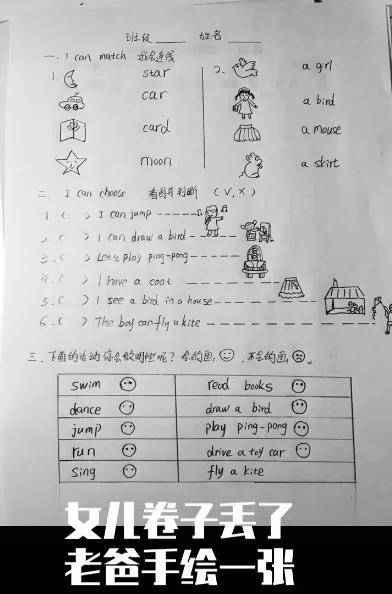 班级 姓名
一. I can match 我会连线
1. star
car
card
moon
2. a girl
a bird
a mouse
a skirt
二. I can choose 看图并判断 (√, ×)
1. ( ) I can jump
2. ( ) I can draw a bird
3. ( ) Let's play ping-pong
4. ( ) I have a coat
5. ( ) I see a bird in a house
6. ( ) The boy can fly a kite
三. 下面的活动你会做哪些呢? 会的画, 不会的画.
swim read books
dance draw a bird
jump play ping-pong
run drive a toy car
sing fly a kite
女儿卷子丢了
老爸手绘一张